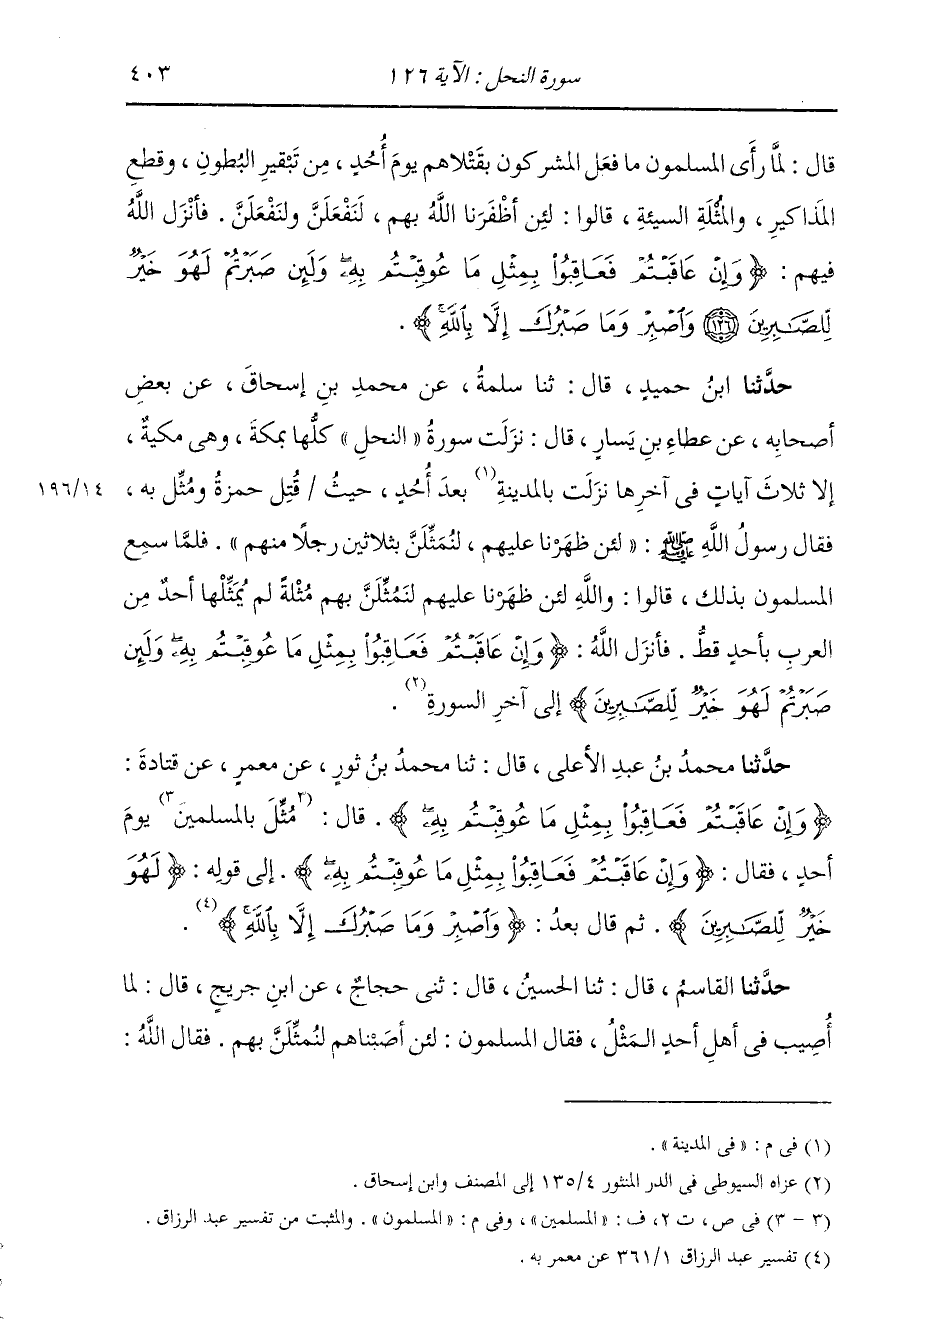 سورة النحل : الآية ١٢٦ ٤٠٣
قال : لمَّا رأَى المسلمون ما فعَل المشركون بقَتْلاهم يومَ أُحُدٍ ، مِن تَبْقيرِ البُطونِ ، وقطعِ
المَذاكيرِ ، والمُثْلَةِ السيئةِ ، قالوا : لئن أظْفَرَنا اللَّهُ بهم ، لَنَفْعَلَنَّ ولنَفْعَلَنَّ . فأنْزَل اللَّهُ
فيهم : ﴿ وَإِنْ عَاقَبْتُمْ فَعَاقِبُوا۟ بِمِثْلِ مَا عُوقِبْتُم بِهِۦ وَلَئِن صَبَرْتُمْ لَهُوَ خَيْرٌ
لِّلصَّـٰبِرِينَ ﴿١٢٦﴾ وَٱصْبِرْ وَمَا صَبْرُكَ إِلَّا بِٱللَّهِ ﴾ .
حدَّثنا ابنُ حميدٍ ، قال : ثنا سلمةُ ، عن محمدِ بنِ إسحاقَ ، عن بعضِ
أصحابِه ، عن عطاءِ بنِ يَسارٍ ، قال : نزَلَت سورةُ « النحل » كلُّها بمكةَ ، وهى مكيةٌ ،
إلا ثلاثَ آياتٍ فى آخرِها نزَلَت بالمدينةِ (١) بعدَ أُحُدٍ ، حيثُ / قُتِل حمزةُ ومُثِّل به ، ١٩٦/١٤
فقال رسولُ اللَّهِ ﷺ : « لئن ظهَرْنا عليهم ، لنُمَثِّلَنَّ بثلاثين رجلًا منهم » . فلمَّا سمِع
المسلمون بذلك ، قالوا : واللَّهِ لئن ظهَرْنا عليهم لنَمُثِّلَنَّ بهم مُثْلةً لم يُمَثِّلْها أحدٌ مِن
العربِ بأحدٍ قطُّ . فأنزَل اللَّهُ : ﴿ وَإِنْ عَاقَبْتُمْ فَعَاقِبُوا۟ بِمِثْلِ مَا عُوقِبْتُم بِهِۦ وَلَئِن
صَبَرْتُمْ لَهُوَ خَيْرٌ لِّلصَّـٰبِرِينَ ﴾ إلى آخرِ السورةِ (٢) .
حدَّثنا محمدُ بنُ عبدِ الأعلى ، قال : ثنا محمدُ بنُ ثورٍ ، عن معمرٍ ، عن قتادةَ :
﴿ وَإِنْ عَاقَبْتُمْ فَعَاقِبُوا۟ بِمِثْلِ مَا عُوقِبْتُم بِهِۦ ﴾ . قال : (٣) مُثِّلَ بالمسلمين (٣) يومَ
أحدٍ ، فقال : ﴿ وَإِنْ عَاقَبْتُمْ فَعَاقِبُوا۟ بِمِثْلِ مَا عُوقِبْتُم بِهِۦ ﴾ . إلى قولِه : ﴿ لَهُوَ
خَيْرٌ لِّلصَّـٰبِرِينَ ﴾ . ثم قال بعدُ : ﴿ وَٱصْبِرْ وَمَا صَبْرُكَ إِلَّا بِٱللَّهِ ﴾ (٤) .
حدَّثنا القاسمُ ، قال : ثنا الحسينُ ، قال : ثنى حجاجٌ ، عن ابنِ جريجٍ ، قال : لما
أُصِيب فى أهلِ أحدٍ المَثْلُ ، فقال المسلمون : لئن أصَبْناهم لنُمثِّلَنَّ بهم . فقال اللَّهُ :
(١) فى م : « فى المدينة » .
(٢) عزاه السيوطى فى الدر المنثور ١٣٥/٤ إلى المصنف وابن إسحاق .
(٣ - ٣) فى ص ، ت ٢، ف : « المسلمين » ، وفى م : « المسلمون » . والمثبت من تفسير عبد الرزاق .
(٤) تفسير عبد الرزاق ٣٦١/١ عن معمر به .